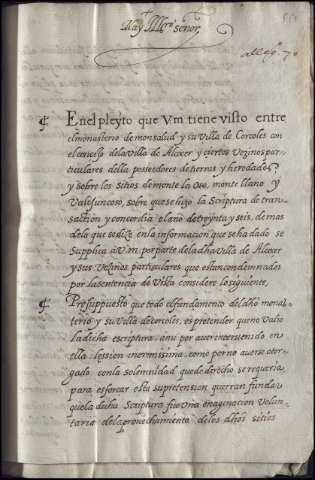 Muy Illre señor,
En el pleyto que Vm tiene visto entre
el monasterio de monsalud y su Villa de Corcoles con
el concejo de la Villa de Alcocer y ciertos Vezinos par-
ticulares della posseedores de tierras y heredades
y sobre los Sitios de monte la Osa, monte llano y
Valesuncoso, sobre que se hizo la Scriptura de tran-
saction y concordia el año de treynta y seis, demas
de lo que se dize en la informacion que se ha dado se
Supplica a V.m. por parte de la dha Villa de Alcocer
y sus Vezinos particulares que estan condemnados
por la sentencia de Vista considere lo siguiente,
Presuppuesto que todo el fundamento del dho monas-
terio y su Villa de corcoles, es pretender que no valio
la dicha escriptura, ansi por auer interuenido en
ella lession inormissima, como por no auerse otor-
gado con la solemnidad que de derecho se requeria,
para esforcar esta su pretension querran fundar
que la dicha Scriptura fue vna enagenacion Volun-
taria del aprouechamiento de los dhos sitios